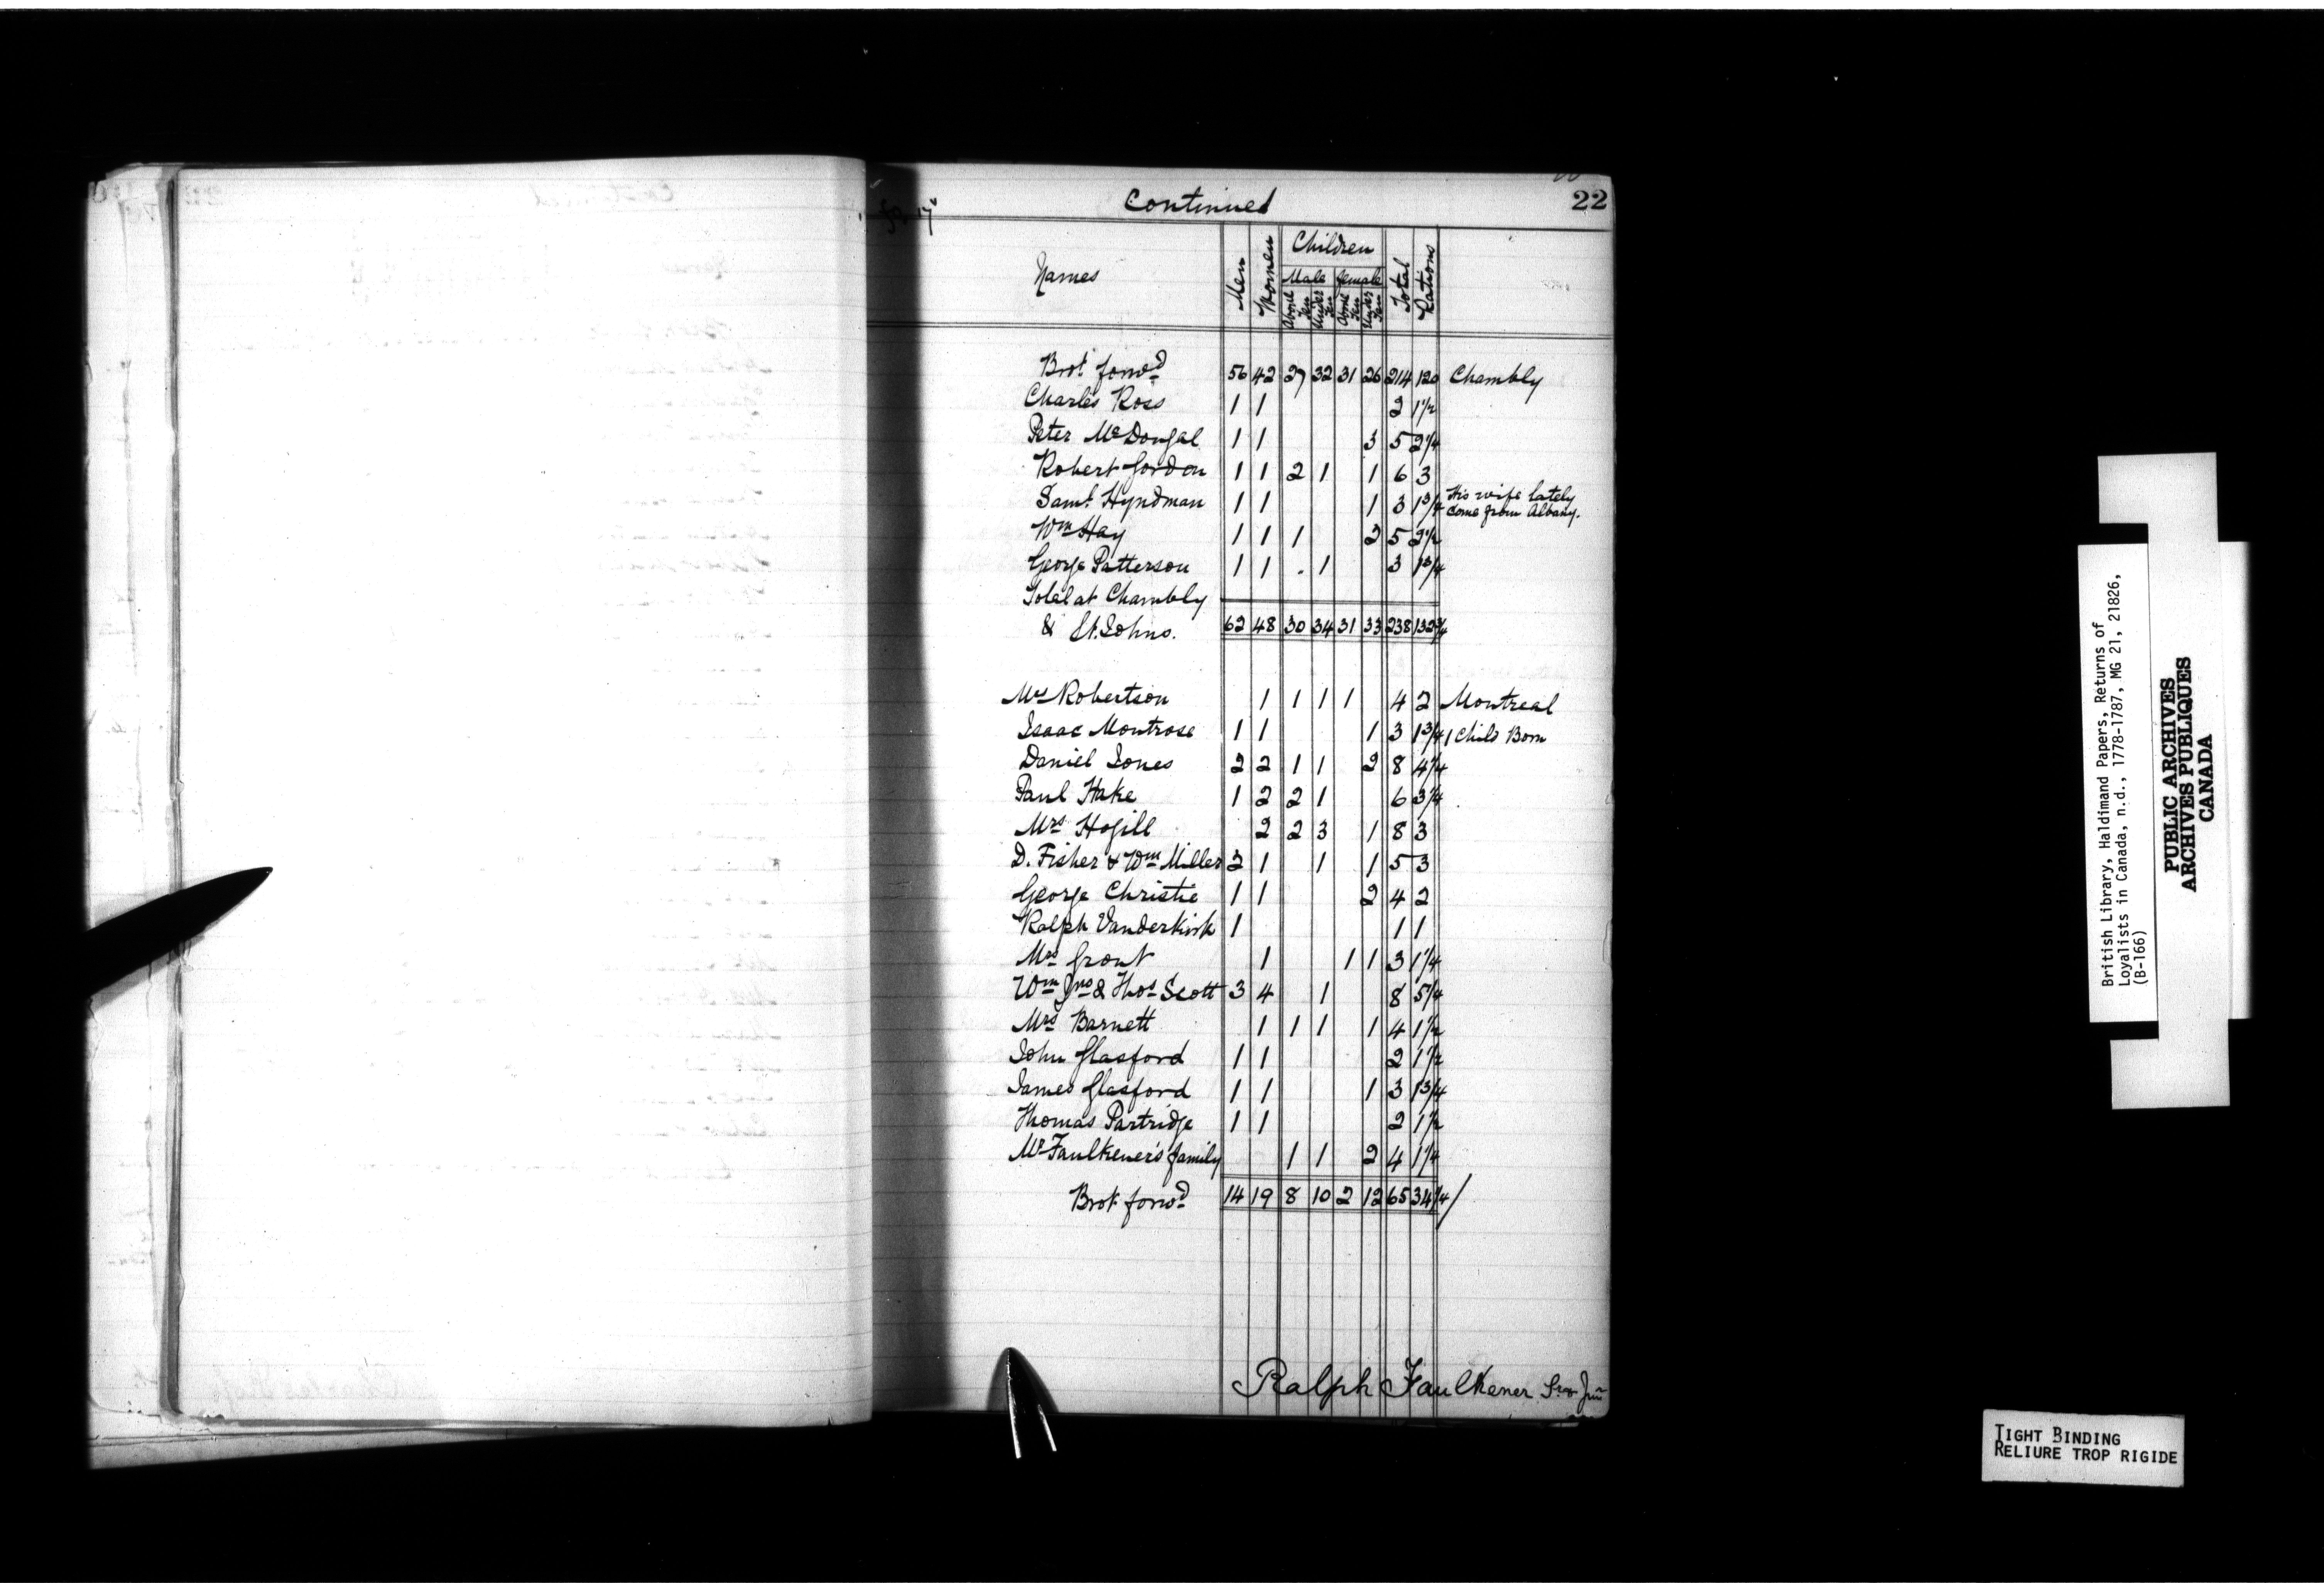 Continued
22
Names
Men
Women
Children
Male female
Above Ten
Under Ten
Above Ten
Under Ten
Total
Rations
Brot. forwd 56 42 27 32 31 26 214 120 Chambly
Charles Ross 1 1 2 1 1/2
Peter McDougal 1 1 3 5 2 1/4
Robert Gordon 1 1 2 1 1 6 3
Saml. Hyndman 1 1 1 3 1 3/4 His wife lately
come from Albany.
Wm Hay 1 1 1 2 5 2 1/2
George Patterson 1 1 . 1 3 1 3/4
Total at Chambly
& St. Johns. 62 48 30 34 31 33 238 132 3/4
Mrs Robertson 1 1 1 1 4 2 Montreal
Isaac Montrose 1 1 1 3 1 3/4 1 Child Born
Daniel Jones 2 2 1 1 2 8 4 1/4
Paul Hake 1 2 2 1 6 3 1/4
Mrs Hogill 2 2 3 1 8 3
D. Fisher & Wm Miller 2 1 1 1 5 3
George Christie 1 1 2 4 2
Ralph Vanderkirk 1 1 1
Mrs Grant 1 1 1 3 1 1/4
Wm Jno & Thos Scott 3 4 1 8 5 1/4
Mrs Barnett 1 1 1 1 4 1 1/2
John Glasford 1 1 2 1 1/2
James Glasford 1 1 1 3 1 3/4
Thomas Partridge 1 1 2 1 1/2
Mr Faulkener's family 1 1 2 4 1 1/4
Brot. forwd 14 19 8 10 2 12 65 34 1/4 /
Ralph Faulkener
British Library, Haldimand Papers, Returns of
Loyalists in Canada, n.d., 1778-1787, MG 21, 21826,
(B-166)
PUBLIC ARCHIVES
ARCHIVES PUBLIQUES
CANADA
TIGHT BINDING
RELIURE TROP RIGIDE